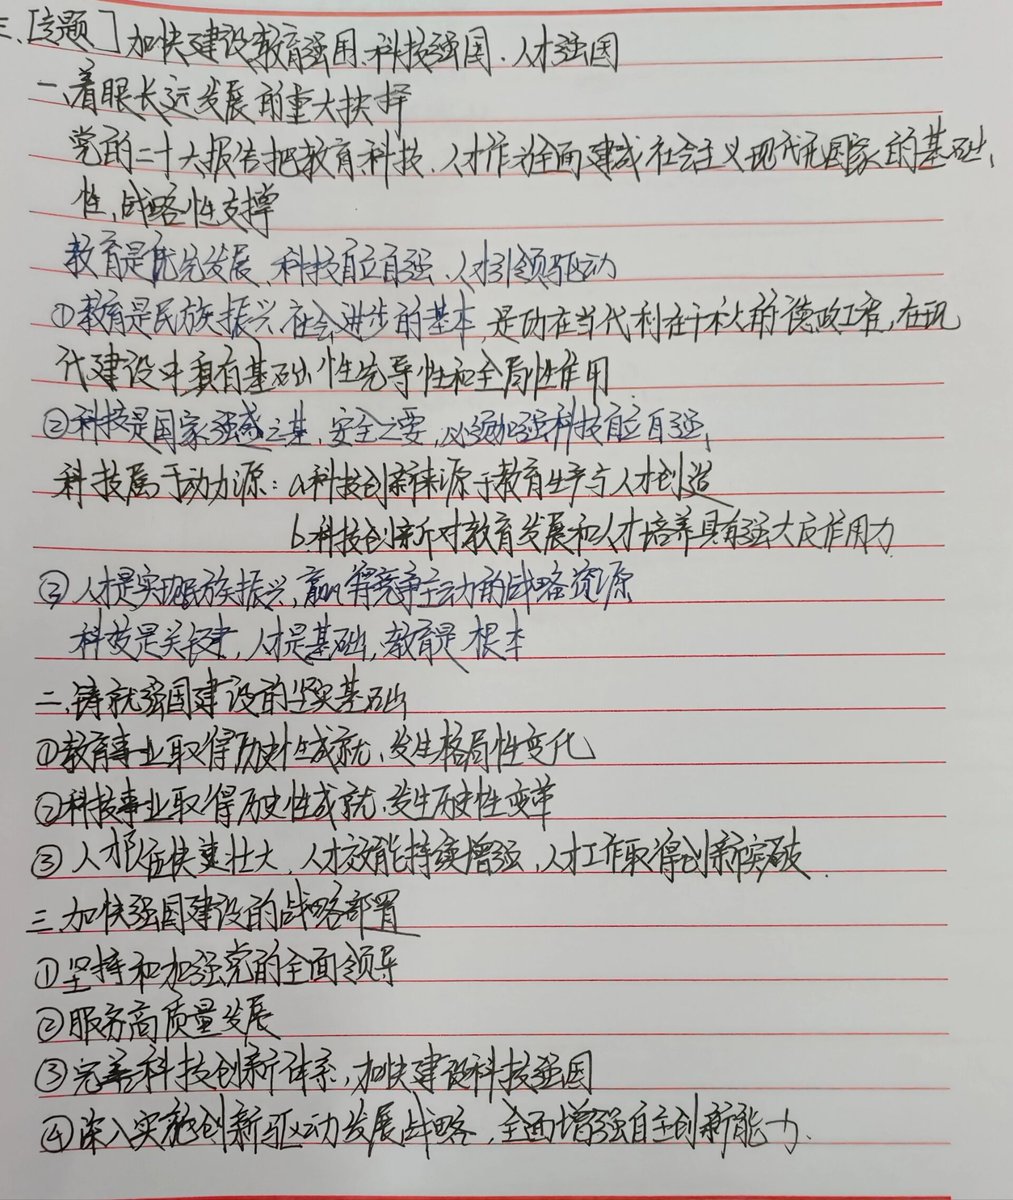 三、[专题] 加快建设教育强国、科技强国、人才强国
一、着眼长远发展的重大抉择
党的二十大报告把教育科技、人才作为全面建成社会主义现代化国家的基础、
性、战略性支撑
教育是优先发展、科技自立自强、人才引领驱动
①教育是民族振兴社会进步的基本,是功在当代利在千秋的德政工程,在现
代建设中具有基础性先导性和全局性作用
②科技是国家强盛之基,安全之要,必须加强科技自立自强,
科技属于动力源:a.科技创新来源于教育生产与人才创造
b.科技创新对教育发展和人才培养具有强大反作用力
③人才是实现民族振兴,赢得竞争主动的战略资源
科技是关键,人才是基础,教育是根本
二、铸就强国建设的坚实基础
①教育事业取得历史性成就、发生格局性变化
②科技事业取得历史性成就、发生历史性变革
③人才队伍快速壮大、人才效能持续增强,人才工作取得创新突破
三、加快强国建设的战略部署
①坚持和加强党的全面领导
②服务高质量发展
③完善科技创新体系,加快建设科技强国
④深入实施创新驱动发展战略,全面增强自主创新能力.